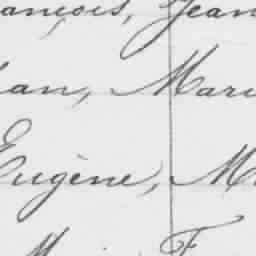 ançois, Jean
an, Mari
Eugène, M